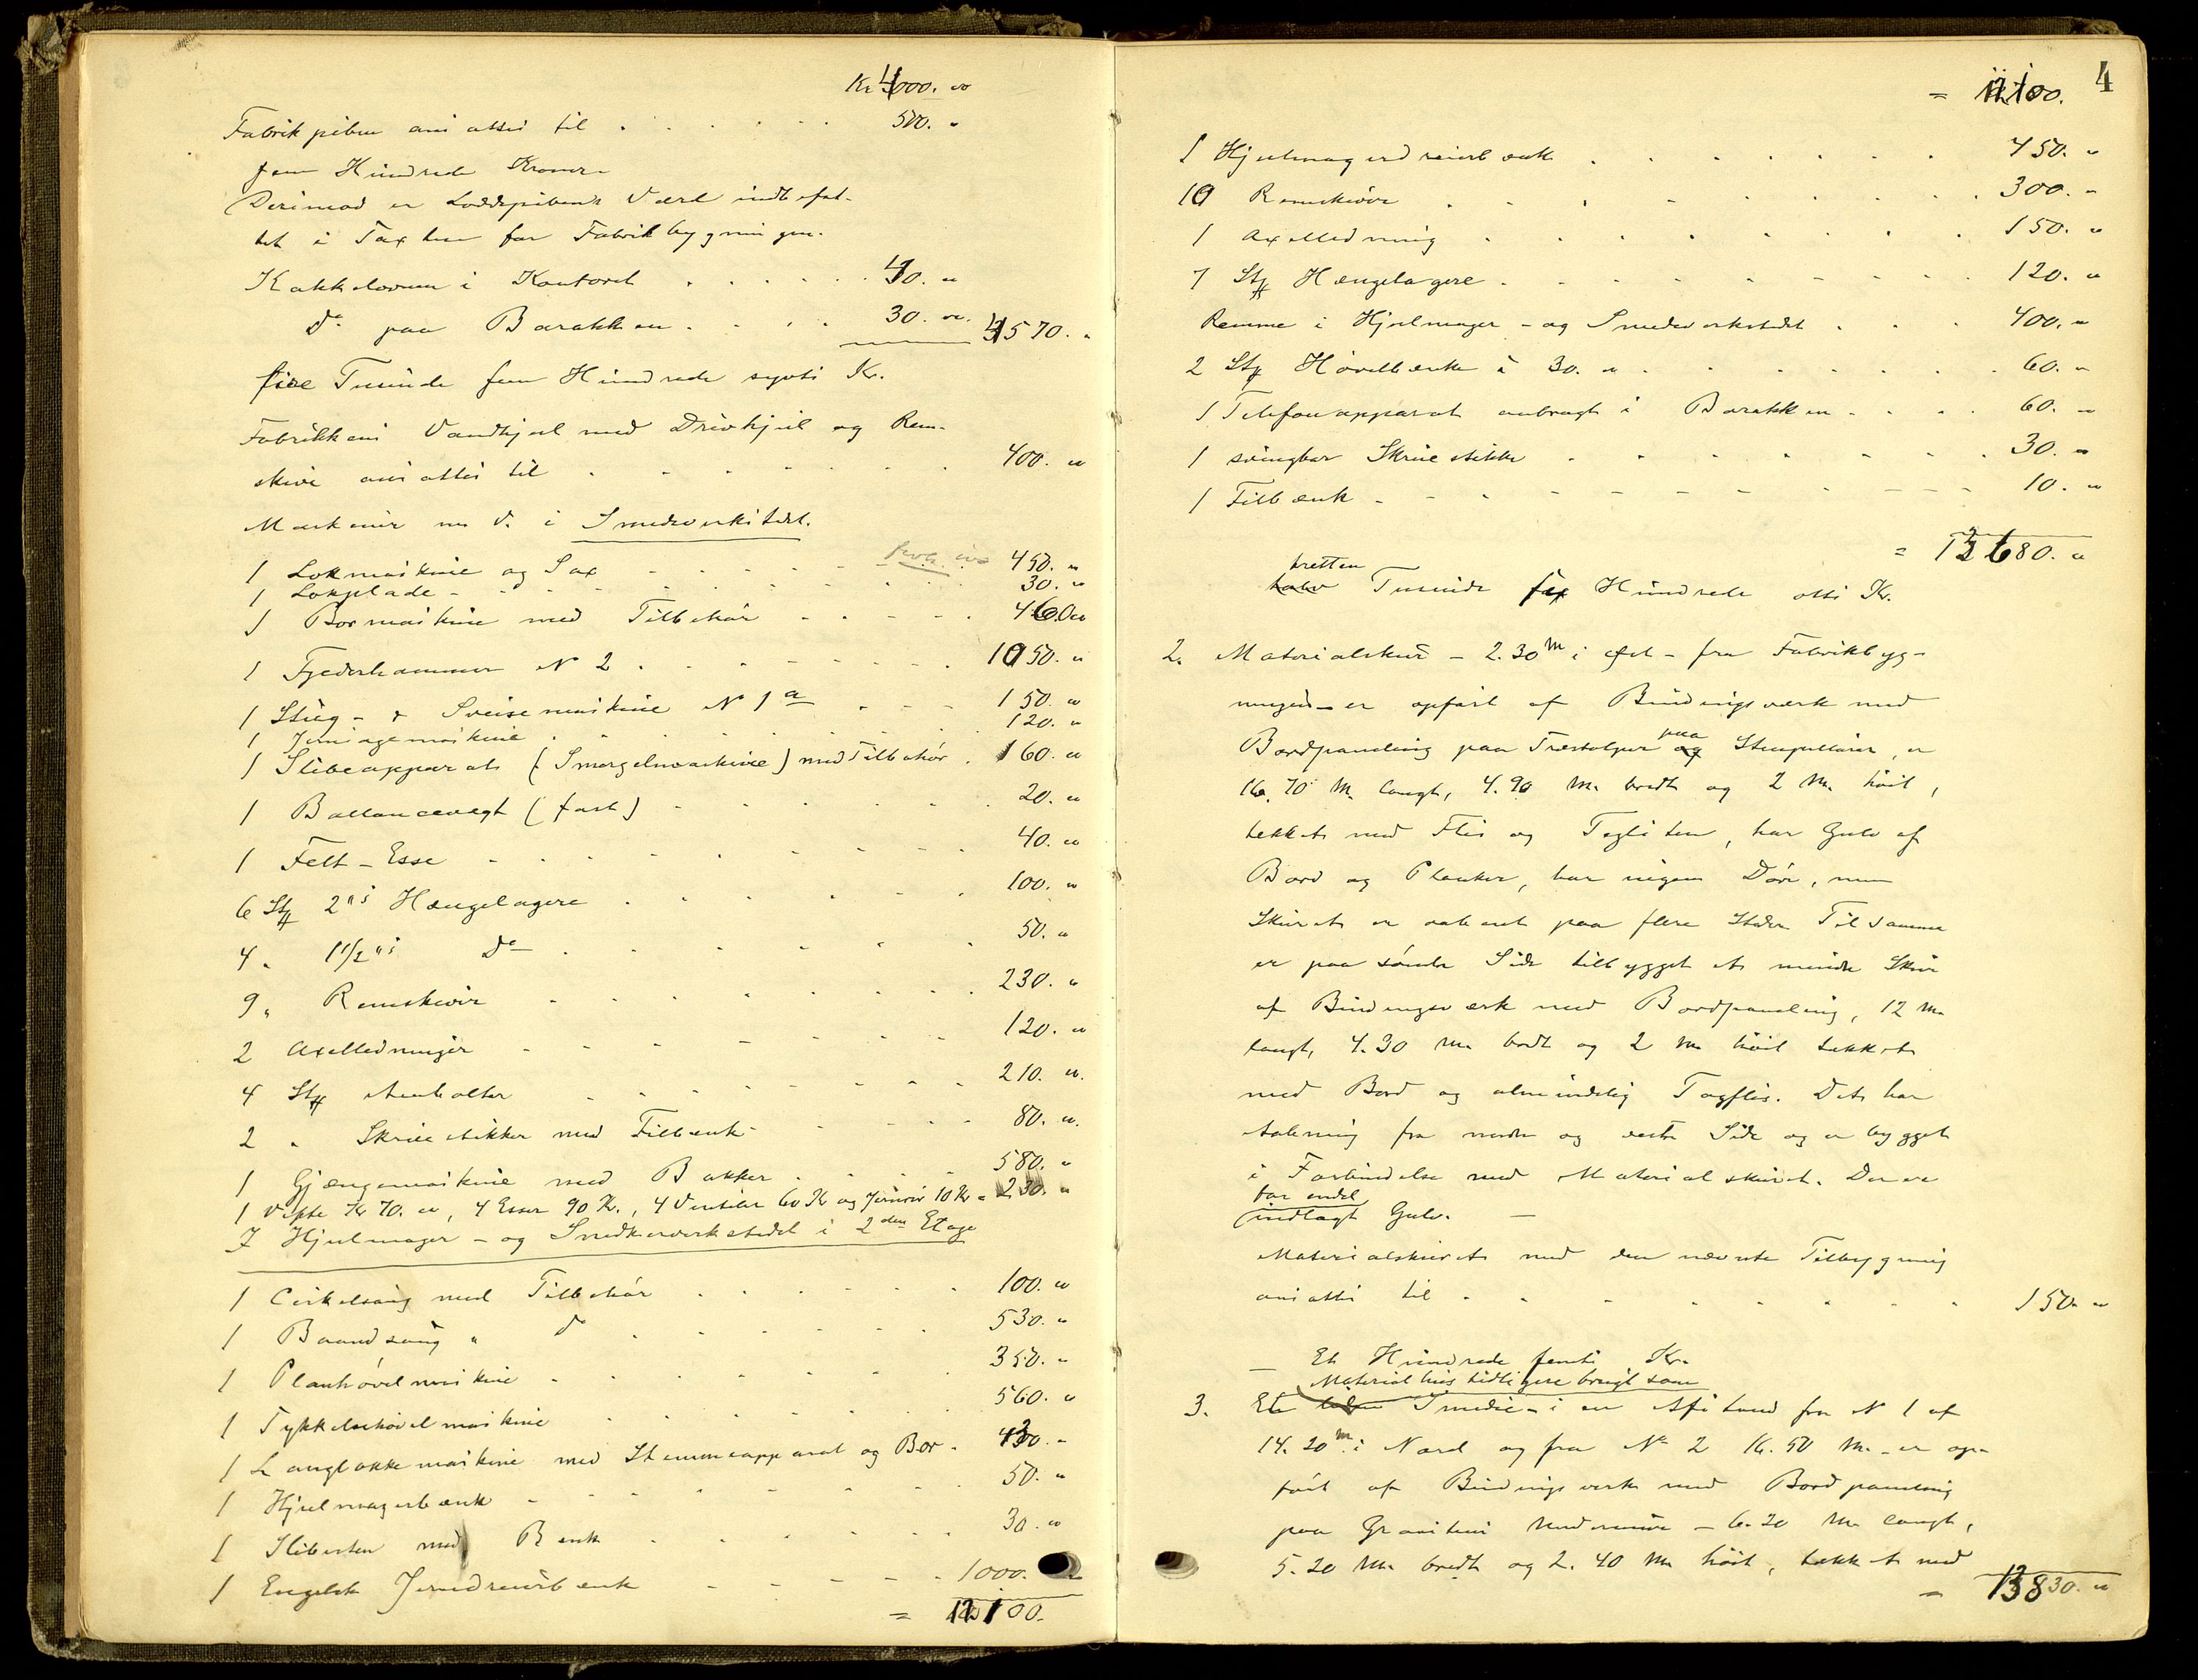 Kr 4000. "
Fabrikpiben ansattes til . . . . . . 500. "
fem Hundrede Kroner
Derimod er Loddepibens Værd indbefat-
tet i Taxten for Fabrikbygningen.
Kakkelovnen i Kontoret . . . . . . 40. "
do paa Barakken . . . . 30. " 4570. "
fire Tusinde fem Hundrede sytti Kr.
Fabrikkens Vandhjul med Drivhjul og Rem-
skive ansattes til . . . . . . . 400. "
Maskiner m. v. i Smedeverkstedet.
1 Lokmaskine og Sax - - - - 450. "
1 Lokplade - - - - - - 30. "
1 Bormaskine med Tilbehør . . . . . 460 "
1 Fjederhammer No 2 . . . . . . . . 1050. "
1 Stug- & Sveisemaskine No 1 a . . . 150. "
1 maskine . . . . . . 120. "
1 Slibeapparat (Smergelmaskine) med Tilbehør . 160. "
1 Ballancevegt (fast) - - - - - 20. "
1 Felt-Esse - - - - - - - 40. "
6 Stk 2"s Hængelagere . . . . . . 100. "
4 " 1 1/2"s do . . . . . . 50. "
9 " Remskiver . . . . . . . 230. "
2 Axelledninger - - - - - - 120. "
4 Stk Ambolter . . . . . . . 210. "
2 " Skruestikker med Filbænk - - - - 80. "
1 Gjængemaskine med Bakker . . . . 580. "
1 Vifte Kr 70. ", 4 Esser 90 Kr., 4 Ventiler 60 Kr og Jernrør 10 Kr = 230. "
I Hjulmager- og Snedkerverkstedet i 2den Etage
1 Cirkelsaug med Tilbehør . . . . . . 100. "
1 Baandsaug " do . . . . . . . 530. "
1 Planhøvelmaskine . . . . . . . 350. "
1 Tykkelsehøvelmaskine . . . . . . 560. "
1 Langlokkemaskine med Stemmeapparat og Bor . 430. "
1 Hjulmagerbænk - - - - - - 50. "
1 Slibesten med Benk . . . . . . . 30. "
1 Engelsk Jerndreierbænk - - - - - 1000. "
= 12100.
4
= 12100.
1 Hjulmagerdreierbænk . . . . . . . 450. "
10 Remskiver . . . . . . . . . 300. "
1 Axelledning . . . . . . . . 150. "
7 Stk Hængelagere . . . . . . . . 120. "
Remme i Hjulmager- og Smedeverkstedet . . . 400. "
2 Stk Høvelbenke à 30. " . . . . . . 60. "
1 Telefonapparat anbragt i Barakken . . . . 60. "
1 svingbar Skruestikke . . . . . . . 30. "
1 Filbænk - - - - - - - - - 10. "
= 13680. "
tretten
tolv Tusinde sex Hundrede otti Kr.
2. Materialskur - 2.30 m i øst - fra Fabrikbyg-
ningen - er opført af Bindingsværk med
paa
Bordpaneling paa Træstolper og Stenpillarer, er
16.70 M. langt, 4.90 M. bredt og 2 M. høit,
tekket med Flis og Teglsten, har Gulv af
Bord og Planker, har ingen Døre, men
Skuret er aabent paa flere Steder Til samme
er paa søndre Side tilbygget et mindre Skur
af Bindingsværk med Bordpaneling, 12 M.
langt, 4.30 M. bredt og 2 M. høit tekket
med Bord og almindelig Tagflis. Det har
Aabning fra nordre og vestre Side og er bygget
i Forbindelse med Materialskuret. Der er
for endel
indlagt Gulv. -
Materialskuret med den nævnte Tilbygning
ansattes til . . . . . . . . . 150. "
- Et Hundrede femti Kr.
Materialhus tidligere brugt som
3. Et liden Smedie - i en Afstand fra No 1 af
14.20 m i Nord og fra No 2 16.50 M. - er op-
ført af Bindingsverk med Bordpaneling
paa Gravstens Undermure - 6.20 M. langt,
5.20 M. bredt og 2.40 M. høit, tekket med
= 13830. "